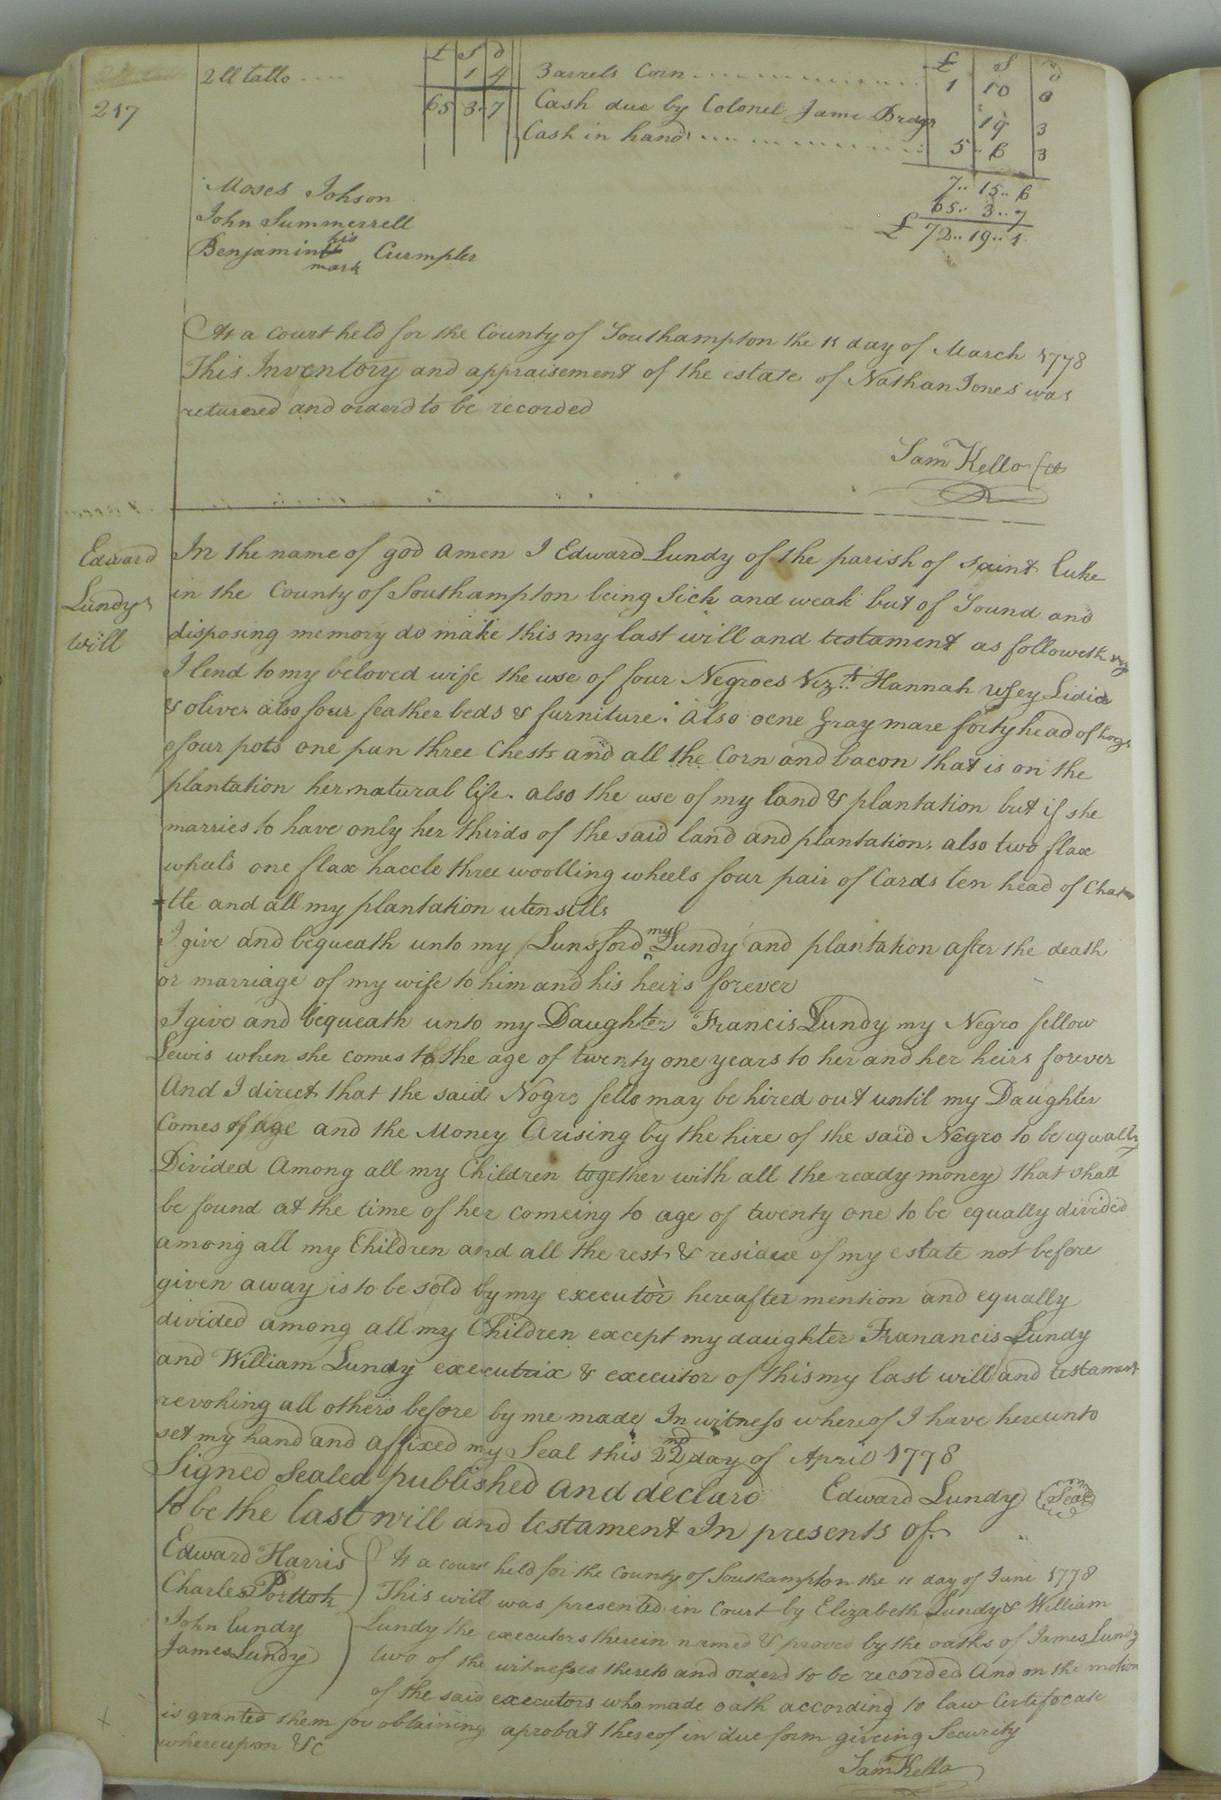 £ S d £ S d
2 ll tallo .... 1 4 3 arrels Corn ............ 1 10 0
217 65 3..7 Cash due by Colonel Jame Bridgr 19 3
Cash in hand ............ 5.. 6 3
Moses Johson 7.. 15.. 6
John Summerrell 65.. 3..7
Benjamin his mark Curmpler £ 72..19..1
At a Court held for the County of Southampton the 11 day of March 1778
This Inventory and appraisement of the estate of Nathan Jones was
returned and orderd to be recorded
Sam Kello
Edward Lundys Will
In the name of god amen I Edward Lundy of the parish of saint Luke
in the County of Southampton being Sick and weak but of Sound and
disposing memory do make this my last will and testament as followeth viz
I lend to my beloved wife the use of four Negroes Vizt. Hannah Usey Lidia
& olive. also four feather beds & furniture. also oene Gray mare forty head of hogs
four pots one pan three Chests and all the Corn and bacon that is on the
plantation her natural life. also the use of my land & plantation but if she
marries to have only her thirds of the said land and plantation, also two flax
whals one flax haccle three woolling wheels four pair of Cards ten head of Chat
=tle and all my plantation utensills
I give and bequeath unto my Lunsford my Lundy and plantation after the death
or marriage of my wife to him and his heirs forever
I give and bequeath unto my Daughter Francis Lundy my Negro fellow
Lewis when she comes to the age of twenty one years to her and her heirs forever
And I direct that the said Nogro fello may be hired out until my Daughter
Comes of age and the Money Arising by the hire of the said Negro to be equally
Divided Among all my Children together with all the ready money that shall
be found at the time of her comeing to age of twenty one to be equally divided
among all my Children and all the rest & residue of my estate not before
given away is to be sold by my executor hereafter mention and equally
divided among all my Children except my daughter Frunancis Lundy
and William Lundy executrix & executor of this my last will and testament
revoking all others before by me made In witness whereof I have hereunto
set my hand and affixed my Seal this 22nd day of April 1778
Signed Sealed published and declard Edward Lundy Seal
to be the last will and testament In presents of.
Edward Harris
Charles Porttok
John Lundy
James Lundy
At a court held for the County of Southampton the 11 day of June 1778
This will was presented in Court by Elizabeth Lundy & William
Lundy the executors therein named & proved by the oaths of James Lundy
two of the witnesses thereto and orderd to be recorded And on the motion
of the said executors who made oath according to law Certificate
is granted them for obtaining aprobat thereof in due form giveing Security
whereupon &c
Sam Kello